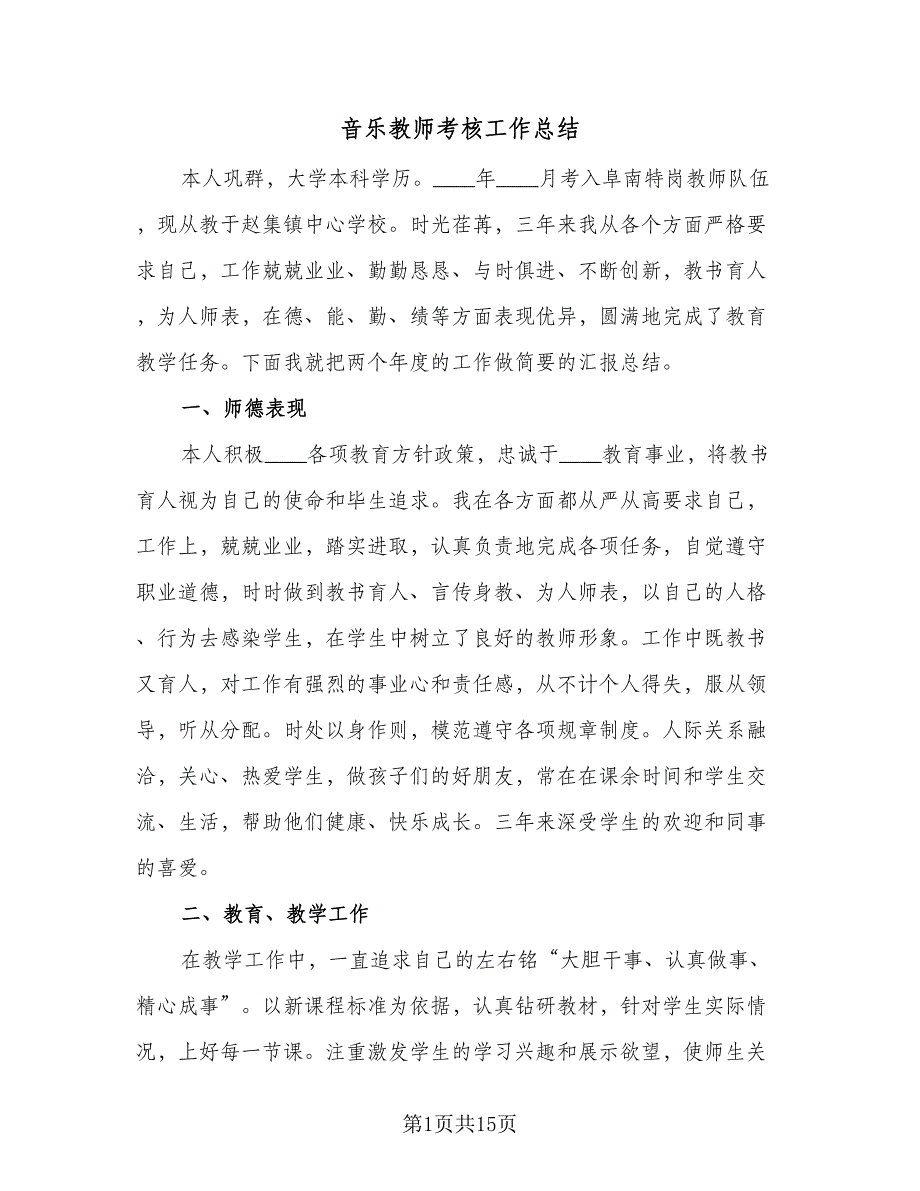 音乐教师考核工作总结
本人巩群，大学本科学历。____年____月考入阜南特岗教师队伍
，现从教于赵集镇中心学校。时光荏苒，三年来我从各个方面严格要
求自己，工作兢兢业业、勤勤恳恳、与时俱进、不断创新，教书育人
，为人师表，在德、能、勤、绩等方面表现优异，圆满地完成了教育
教学任务。下面我就把两个年度的工作做简要的汇报总结。
一、师德表现
本人积极____各项教育方针政策，忠诚于____教育事业，将教书
育人视为自己的使命和毕生追求。我在各方面都从严从高要求自己，
工作上，兢兢业业，踏实进取，认真负责地完成各项任务，自觉遵守
职业道德，时时做到教书育人、言传身教、为人师表，以自己的人格
、行为去感染学生，在学生中树立了良好的教师形象。工作中既教书
又育人，对工作有强烈的事业心和责任感，从不计个人得失，服从领
导，听从分配。时处以身作则，模范遵守各项规章制度。人际关系融
洽，关心、热爱学生，做孩子们的好朋友，常在在课余时间和学生交
流、生活，帮助他们健康、快乐成长。三年来深受学生的欢迎和同事
的喜爱。
二、教育、教学工作
在教学工作中，一直追求自己的左右铭“大胆干事、认真做事、
精心成事”。以新课程标准为依据，认真钻研教材，针对学生实际情
况，上好每一节课。注重激发学生的学习兴趣和展示欲望，使师生关
第1页共15页